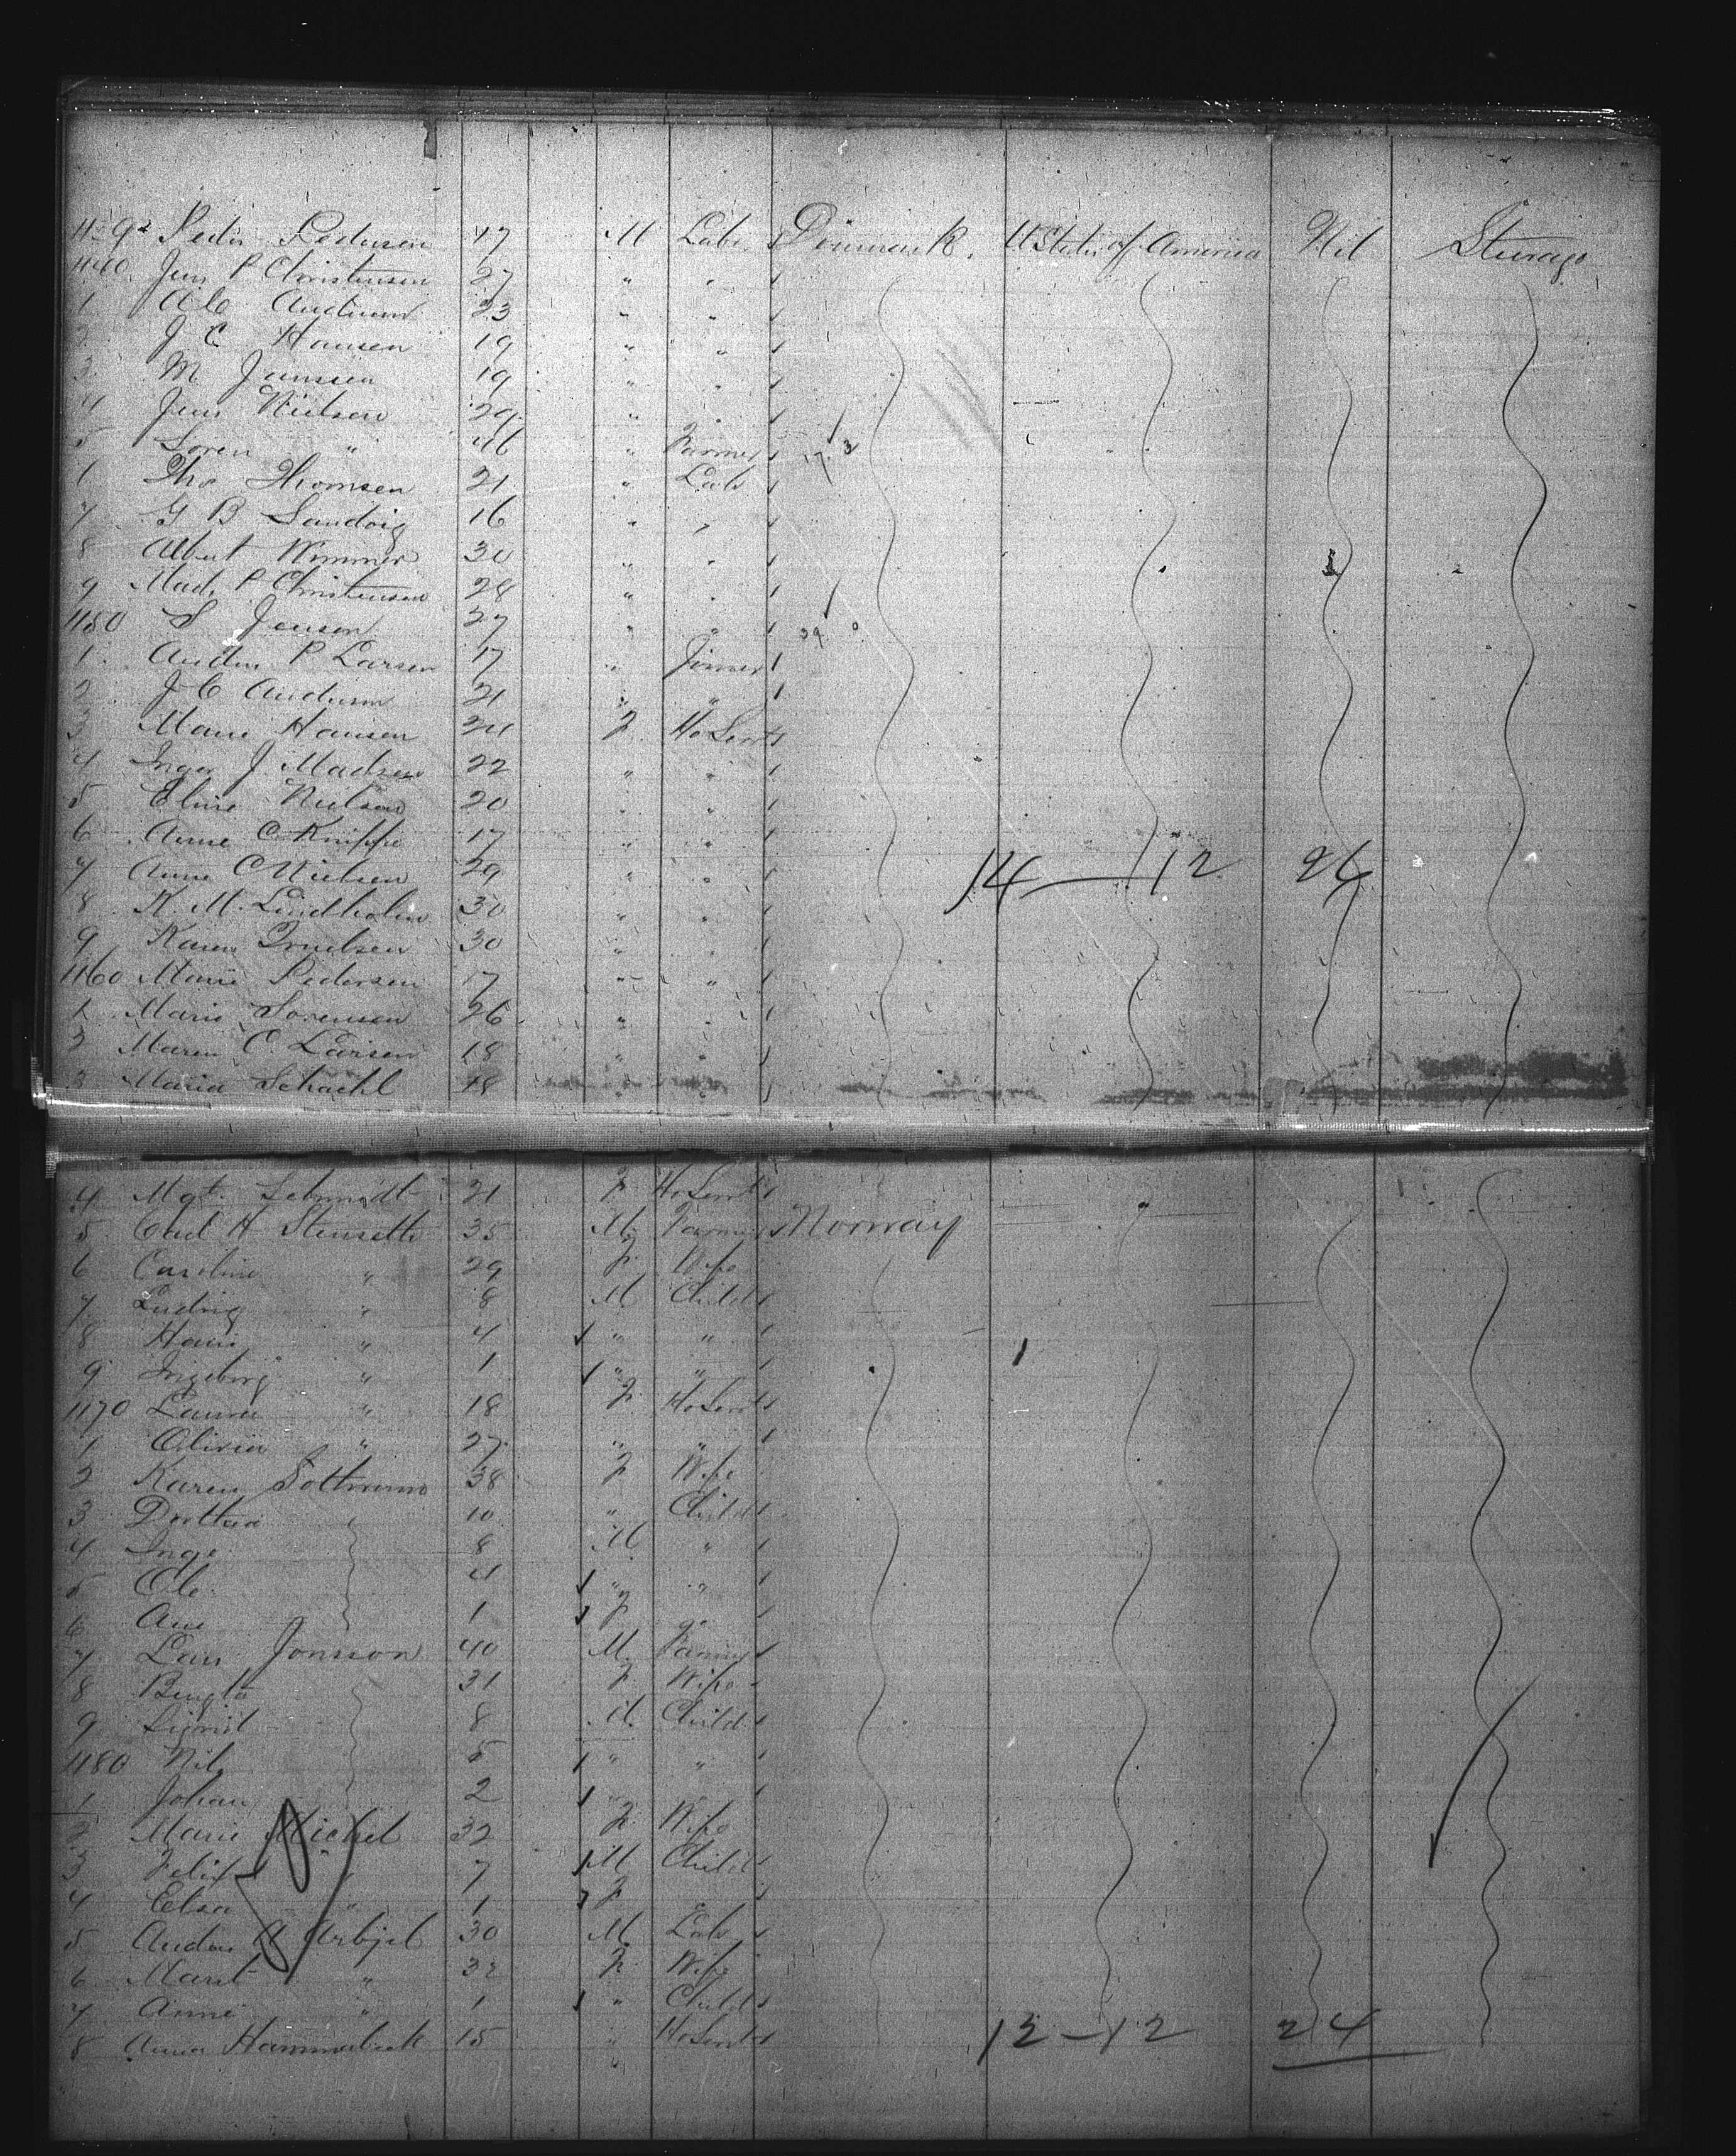 Pedersen 47 M Labr Denmark U States of America Nil Steerage
1140 Jens P Christensen 27 " "
1 A C Andersen 23 " "
2 J C Hansen 19 " "
3 M Jenssen 19 " "
4 Jens Nielsen 29 " "
5 Soren " 46 " Farmer
6 Tho Thomsen 21 " Labr
7 G B Sandvig 16 " "
8 Albert Wimmer 30 " "
9 Mads P Christensen 28 " "
1150 S Jensen 27 " "
1 Anders P Larsen 17 " Joiner
2 J C Andersen 21 " "
3 Marie Hansen 24 F Ho Servt
4 Inger J. Madsen 22 " "
5 Eline Nielsen 20 " "
6 Anne C Knippe 17 " "
7 Anne C Nielsen 29 " " 14 — 12 26
8 K. M. Lindholm 30 " "
9 Karen 30 " "
1160 Marie Pedersen 17 " "
1 Marie Sorensen 26 " "
2 Maren C. Larsen 18 " "
3 Maria Schachl 48 " "
4 Mgt. Schmidt 21 F Ho Servt
5 Carl H Stensetts 35 M Farmer Norway
6 Caroline " 29 F Wife
7 Ludvig " 8 M Child
8 Hans " 4 " "
9 Ingeborg " 1 " "
1170 Laura " 18 F Ho Servt
1 Olivia " 27 " "
2 Karen 38 F Wife
3 Dorthea 10 " Child
4 Inge 8 M "
5 Ole 4 " "
6 Ane 1 F "
7 Lars Jonsson 40 M. Farmer
8 Bengta 31 F Wife
9 Sigrid 8 M. Child
1180 Nils 5 " "
1 Johan 2 " "
2 Marie Michel 32 F Wife
3 Felix 7 M Child
4 Elsa " 1 F "
5 Anders A Arbjel 30 M Labr
6 Maret " 32 F Wife
7 Anne " 1 " Child
8 Anna Hammerbeck 15 " Ho Servt 12 – 12 24